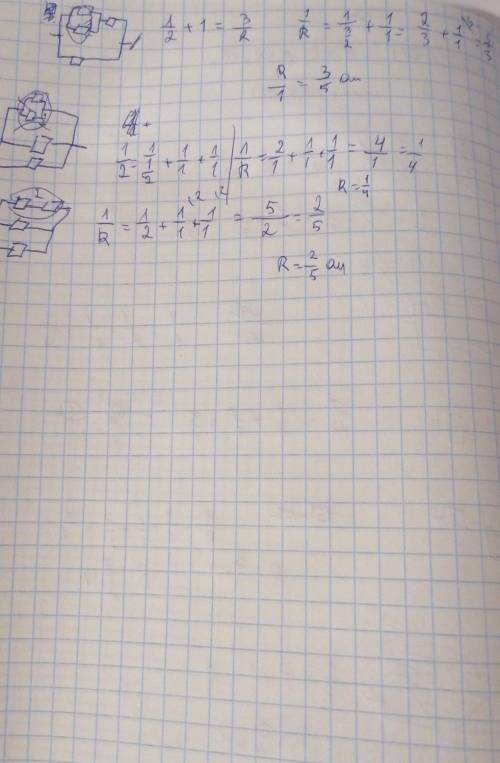 1/2 + 1 = 3/2
1/R = 1/(3/2) + 1/1 = 2/3 + 1/1 = 5/3
R/1 = 3/5 ом
1/2 = 1/(1/2) + 1/1 + 1/1 | 1/R = 2/1 + 1/1 + 1/1 = 4/1 = 1/4
R = 1/4
1/R = 1/2 + 1/1 + 1/1 = 5/2 = 2/5
R = 2/5 ом